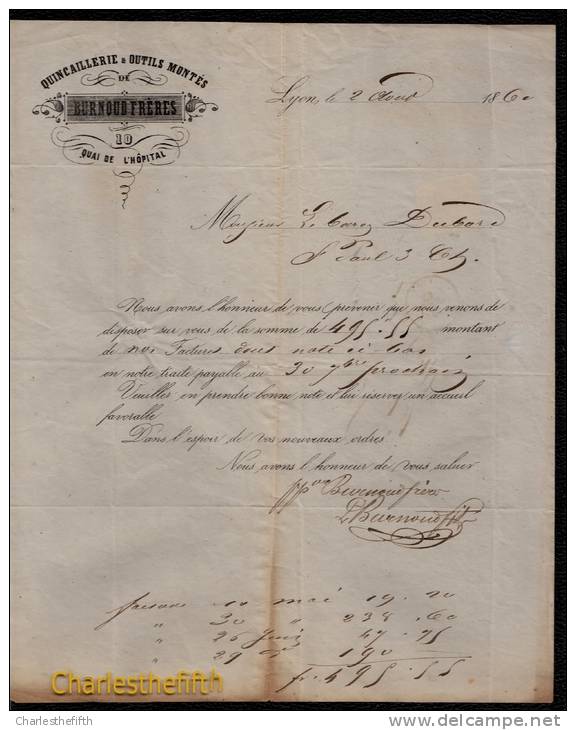 QUINCAILLERIE & OUTILS MONTÉS
DE
BURNOUD FRÈRES
10
QUAI DE L'HÔPITAL
Lyon, le 2 Aout 1860
Monsieur
St Paul 3 Ch.
Nous avons l'honneur de vous prévenir que nous venons de
disposer sur vous de la somme de 495.55 montant
de nos Factures dont note ci bas
en notre traite payable au 30 9bre prochain
Veuillez en prendre bonne note et lui réserver un accueil
favorable
Dans l'espoir de vos nouveaux ordres
Nous avons l'honneur de vous saluer
Burnoud frères
Burnoud
10 mai 19.20
" 30 " 238.60
" 26 Juin 47.75
" 29 do 190
Fr. 495.55
Charlesthefifth
Charlesthefifth
www.delcampe.net